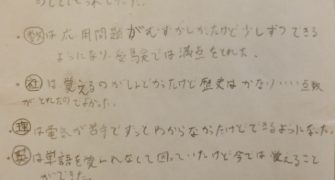 のしとして
・数は応用問題がむずかしかったけど少しずつできる
ようになり、受験では満点をとれた。
・社は覚えるのがしんどかったけど歴史はかなりいい点数
がとれたのでよかった。
・理は電気が苦手でずっとわからなかったけどできるようになった。
・英は単語を覚えれなくて困っていたけど今では覚えること
ができた。